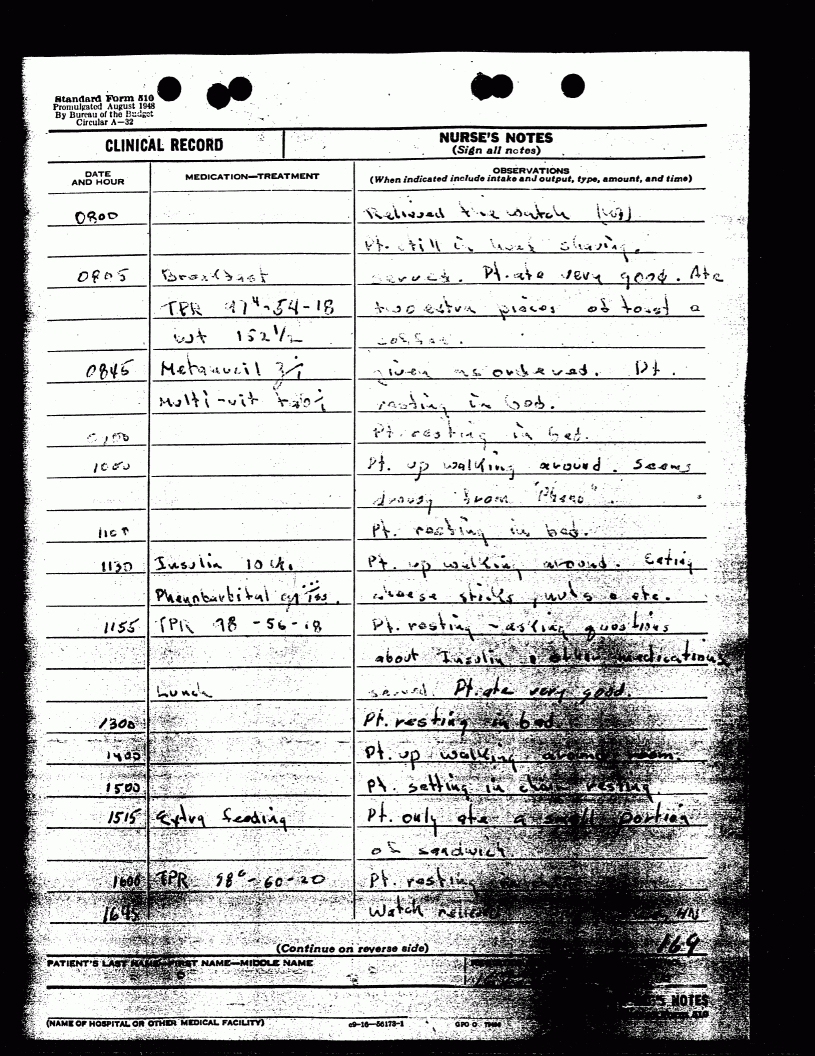 Standard Form 510
Promulgated August 1948
By Bureau of the Budget
Circular A—32
CLINICAL RECORD
NURSE'S NOTES
(Sign all notes)
DATE
AND HOUR
MEDICATION—TREATMENT
OBSERVATIONS
(When indicated include intake and output, type, amount, and time)
0800 Relieved the watch
Pt. still in head shaving.
0805 Breakfast served. Pt. ate very good. Ate
TPR 97⁴-54-18 two extra pieces of toast &
wt 152 1/2 coffee.
0845 Metamucil given as ordered. Pt.
Multi-vit resting in bed.
Pt. resting in bed.
1000 Pt. up walking around. Seems
drowsy from "Pheno".
Pt. resting in bed.
1130 Insulin 10 Pt. up walking around. Eating
Phenobarbital cheese sticks, nuts & etc.
1155 TPR 98-56-18 Pt. resting - asking questions
about Insulin & other medications
Lunch served. Pt. ate very good.
1300 Pt. resting in bed.
1400 Pt. up walking around room.
1500 Pt. setting in chair resting
1515 Extra feeding Pt. only ate a small portion
of sandwich.
1600 TPR 98⁶-60-20 Pt. resting
1645 Watch HN
169
(Continue on reverse side)
PATIENT'S LAST NAME—FIRST NAME—MIDDLE NAME
NURSE'S NOTES
(NAME OF HOSPITAL OR OTHER MEDICAL FACILITY)
c9—16—56173-1
GPO